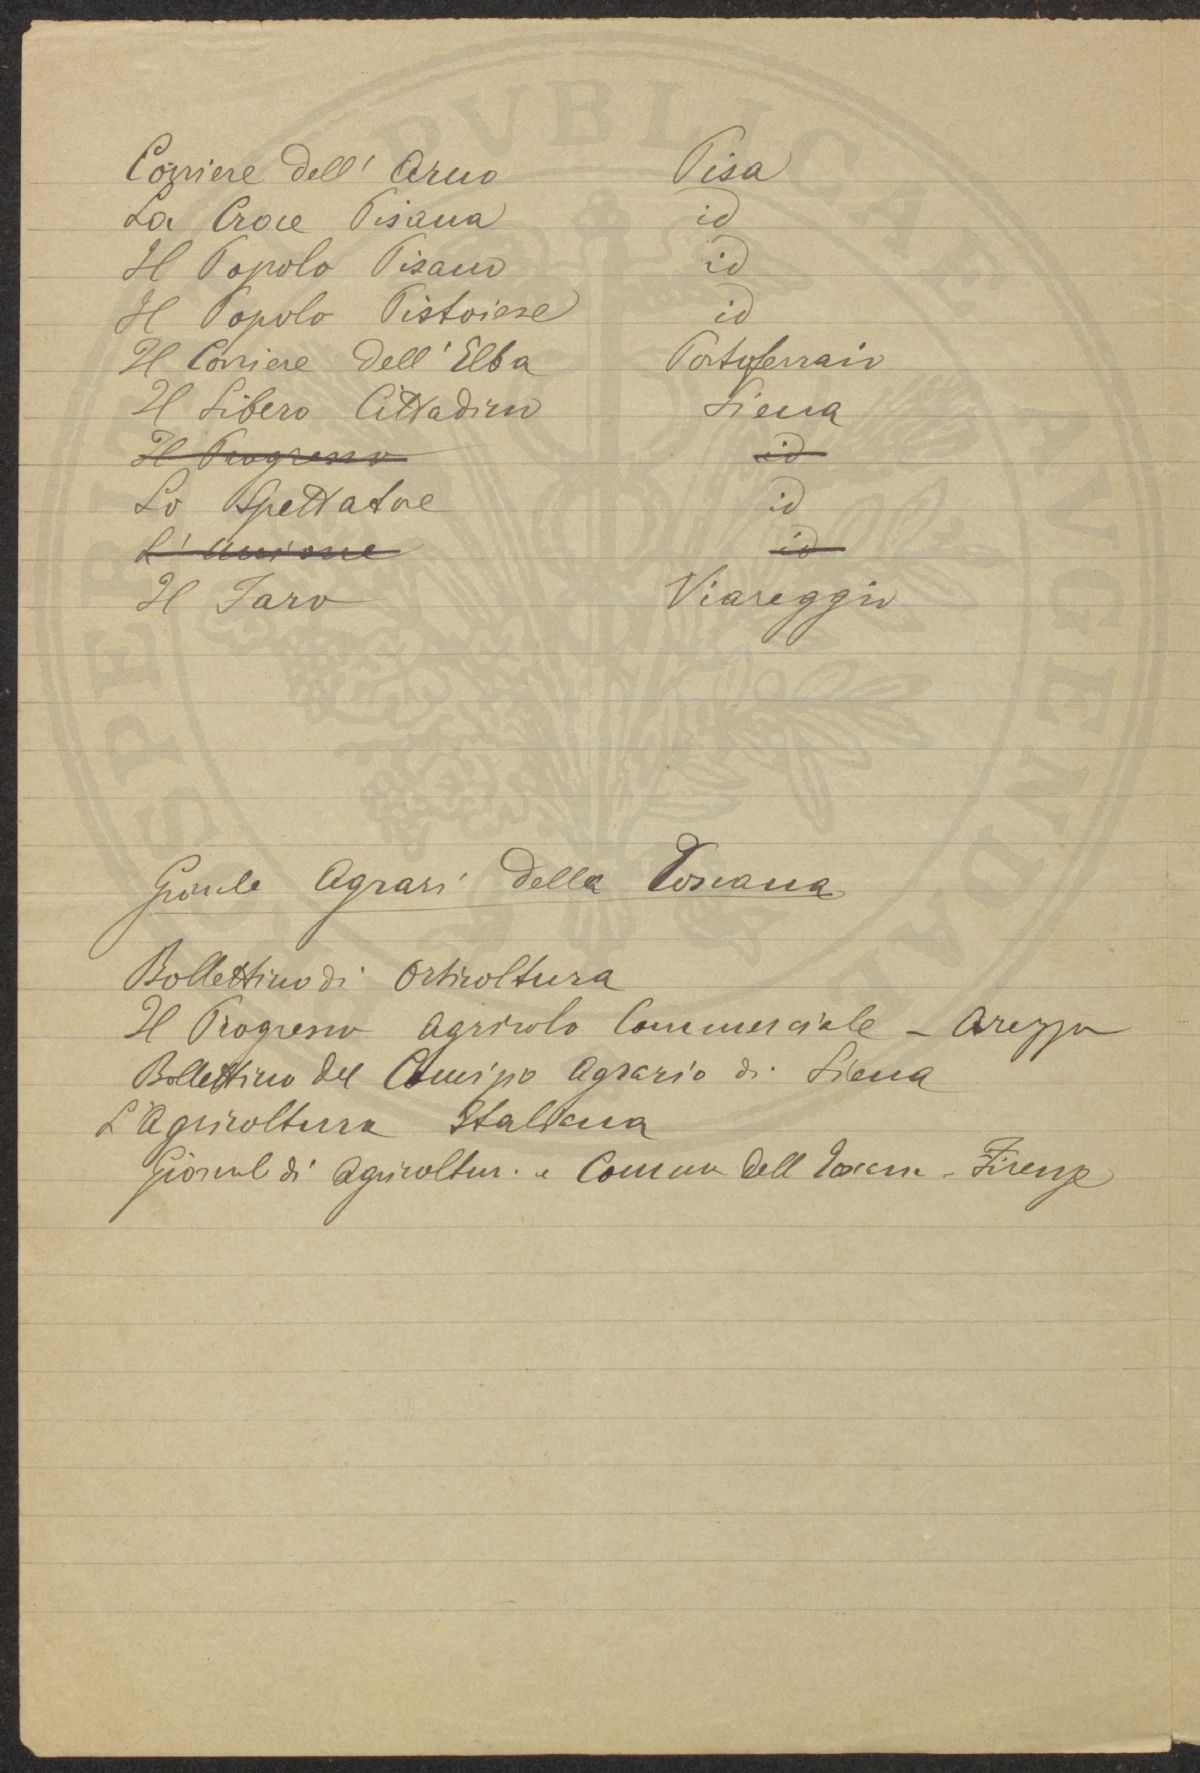 Corriere dell' Arno Pisa
La Croce Pisana id
Il Popolo Pisano id
Il Popolo Pistoiese id
Il Corriere dell' Elba Portoferraio
Il Libero Cittadino Siena
Il Progresso id
Lo Spettatore id
L'Unione id
Il Faro Viareggio
Giornale Agrari della Toscana
Bollettino di Orticoltura
Il Progresso Agricolo Commerciale - Arezzo
Bollettino del Comizio Agrario di Siena
L'Agricoltura Italiana
Giornal di Agricoltur. e Comm dell Toscana - Firenze